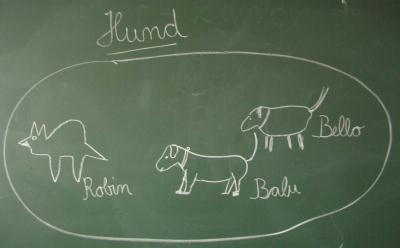 Hund
Bello
Robin
Babu